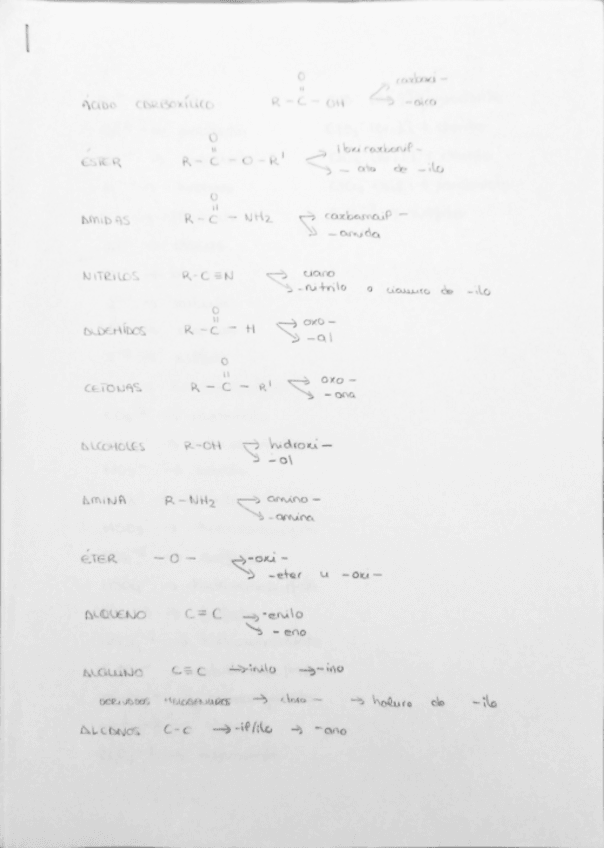 O carboxi-
ÁCIDO CARBOXÍLICO R-C-OH
-oico
O
ÉSTER R-C-O-R'
-ato de -ilo
O
AMIDAS R-C-NH2 carbamoil-
-amida
NITRILOS R-C≡N ciano
-nitrilo o cianuro de -ilo
O
ALDEHÍDOS R-C-H oxo-
-al
O
CETONAS R-C-R' oxo-
-ona
ALCOHOLES R-OH hidroxi-
-ol
AMINA R-NH2 amino-
-amina
ÉTER -O- -oxi-
-eter u -oxi-
ALQUENO C=C → -enilo
-eno
ALQUINO C≡C → inilo → -ino
DERIVADOS HALOGENADOS → cloro- → haluro de -ilo
ALCANOS C-C → -il/ilo → -ano